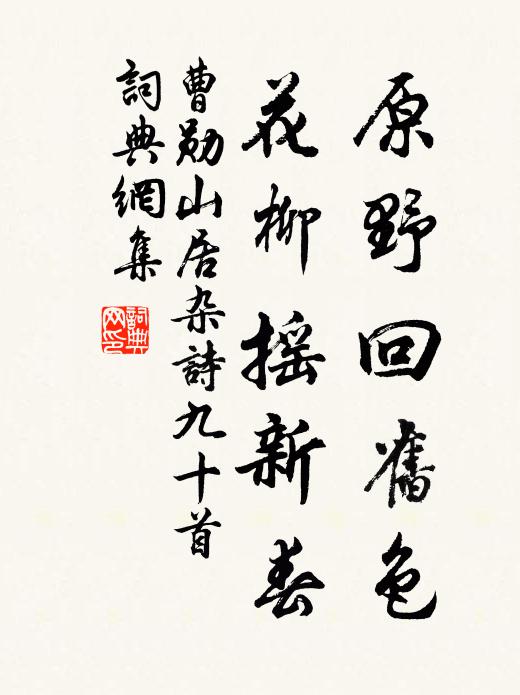 原野回舊色
花柳摇新春
曹勛山居杂詩九十首
詞典網集
詞典
网印